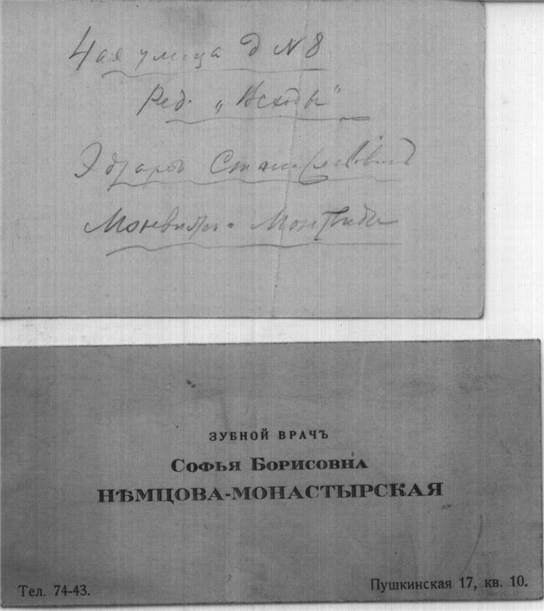 4ая улица д N 8
Ред. „Всходы"
Эдуардъ Станиславовичъ
Монвилъ- Монтвидъ
ЗУБНОЙ ВРАЧЪ
СОФЬЯ БОРИСОВНА
НѢМЦОВА-МОНАСТЫРСКАЯ
Тел. 74-43.
Пушкинская 17, кв. 10.